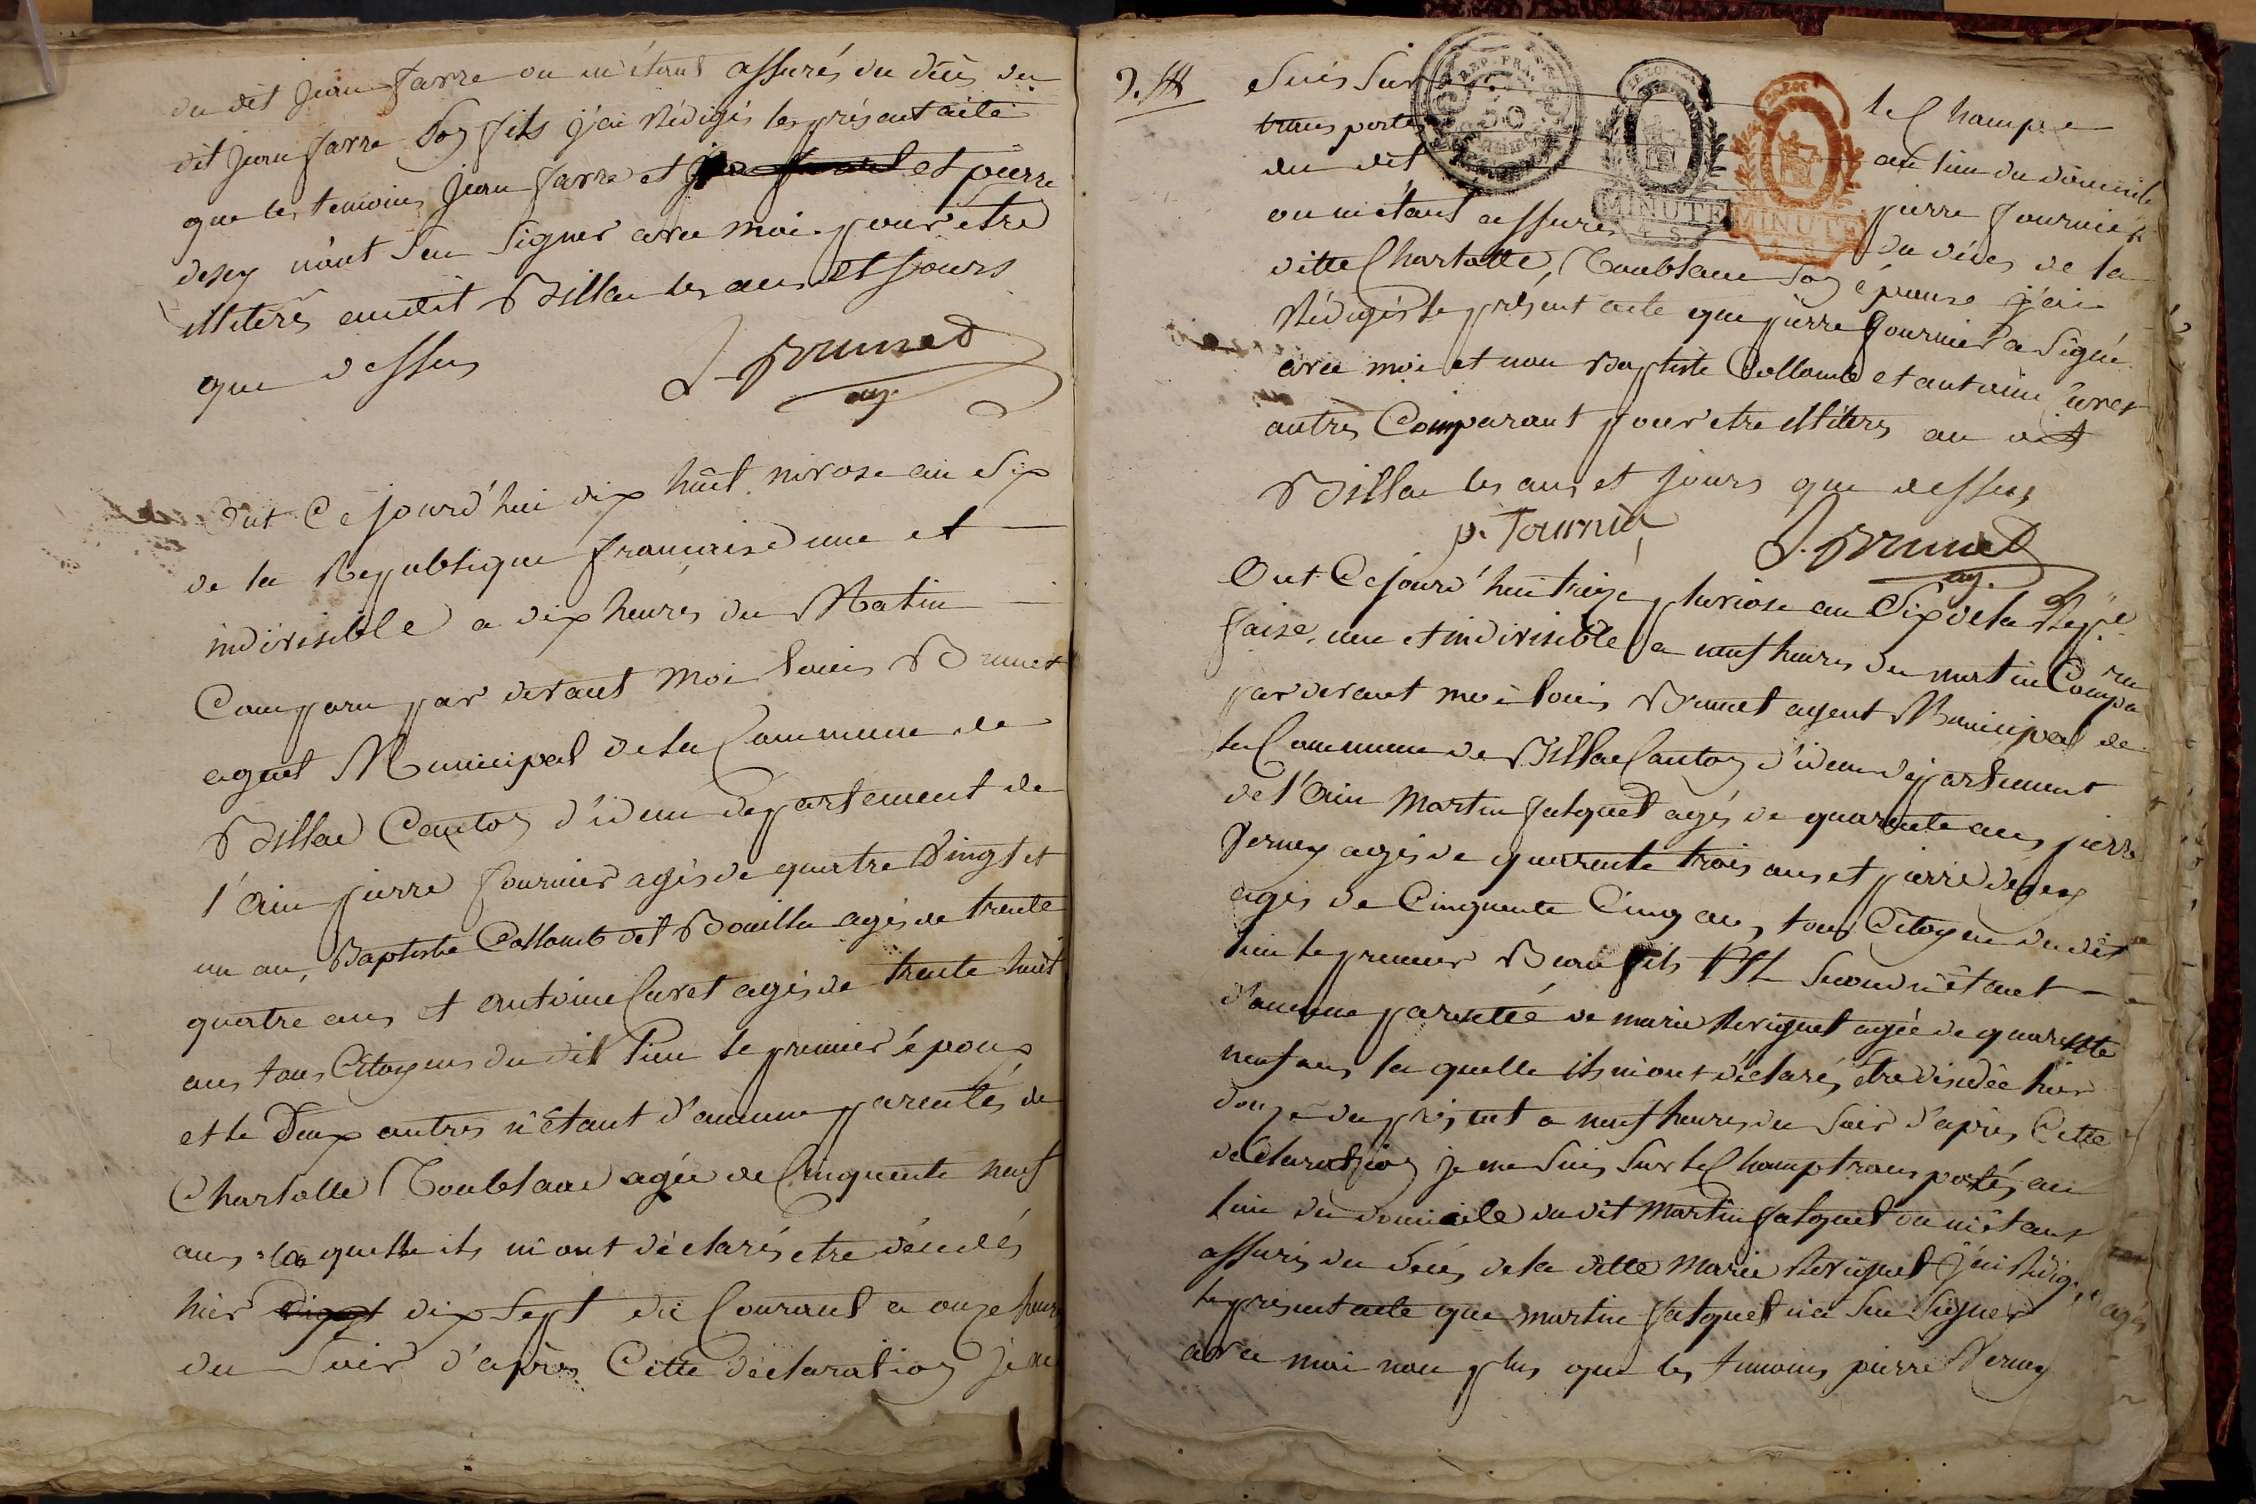 du dit jean farre ou m'étant assurés du décès du
dit jean farre Son fils j'ai Rédigés le présent acte
que les temoins jean farre et et pierre
desey n'ont Seu Signer avec moi pour être
illiterés audit Billac les ans et jours
que dessus J. Brunet
ag.
Dut Cejourd'hui dix huit nivose an Six
de la Republique francaise une et
indivisible a dix heures du Matin
Comparu par devant moi louis Brunet
agent Municipal de la Commune de
Billac Canton d'idem département de
l'Ain pierre fournier agés de quatre Vingt et
un an, Baptiste Collomb dit Bouilla agés de trente
quatre ans et antoine Curet agés de trente huit
ans tous Citoyens du dit lieu le premier époux
et le Deux autres n'étant d'aucune parentés de
Charlotte Toublanc agée de Cinquente neuf
ans laquelle ils m'ont déclarés etre décédés
hier dix Sept du Courant a onze heure
du Soir d'après Cette déclaration je me
Suis Sur le Champ
REP. FRA.
50
MINUTE
4. S.
MINUTE
transportes au lieu du domicile
du dit pierre fournier
ou m'étant assurés du décès de la
ditte Charlotte, Toublanc Son épouse j'ai
Rédigés le présent acte que pierre fournier a Signé
avec moi et non Baptiste Collomb et antoine Curet
autres Comparant pour etre illiteres au dit
Billac les ans et jours que dessus
p. Fournier J. Brunet
ag.
Dut Cejourd'hui treize pluviose an Six de la Rep.e
faise, une et indivisible a neuf heures du matin Comparu
par devant moi louis Brunet agent Municipal de
la Commune de Billac Canton d'idem département
de l'Ain Martin falquet agés de quarente ans pierre
Perney agés de quarrente trois ans et pierre desey
agés de Cinquente Cinq ans, tous Citoyens du dit
lieu le premier Beau fils Second n'étant
d'aucune parentée de marie Reviguet agée de quarente
neuf ans la quelle ils m'ont déclarés être décédée hier
douze du présent a neuf heures du Soir d'après Cette
déClaration je me Suis Sur le Champ transportés au
lieu du domicile du dit Martin falquet ou m'étant
assurés du décès de la ditte Marie Reviguet j'ai Rédigés
le présent acte que martin falquet n'a Seu Signer
avec moi non plus que les temoins pierre Perney